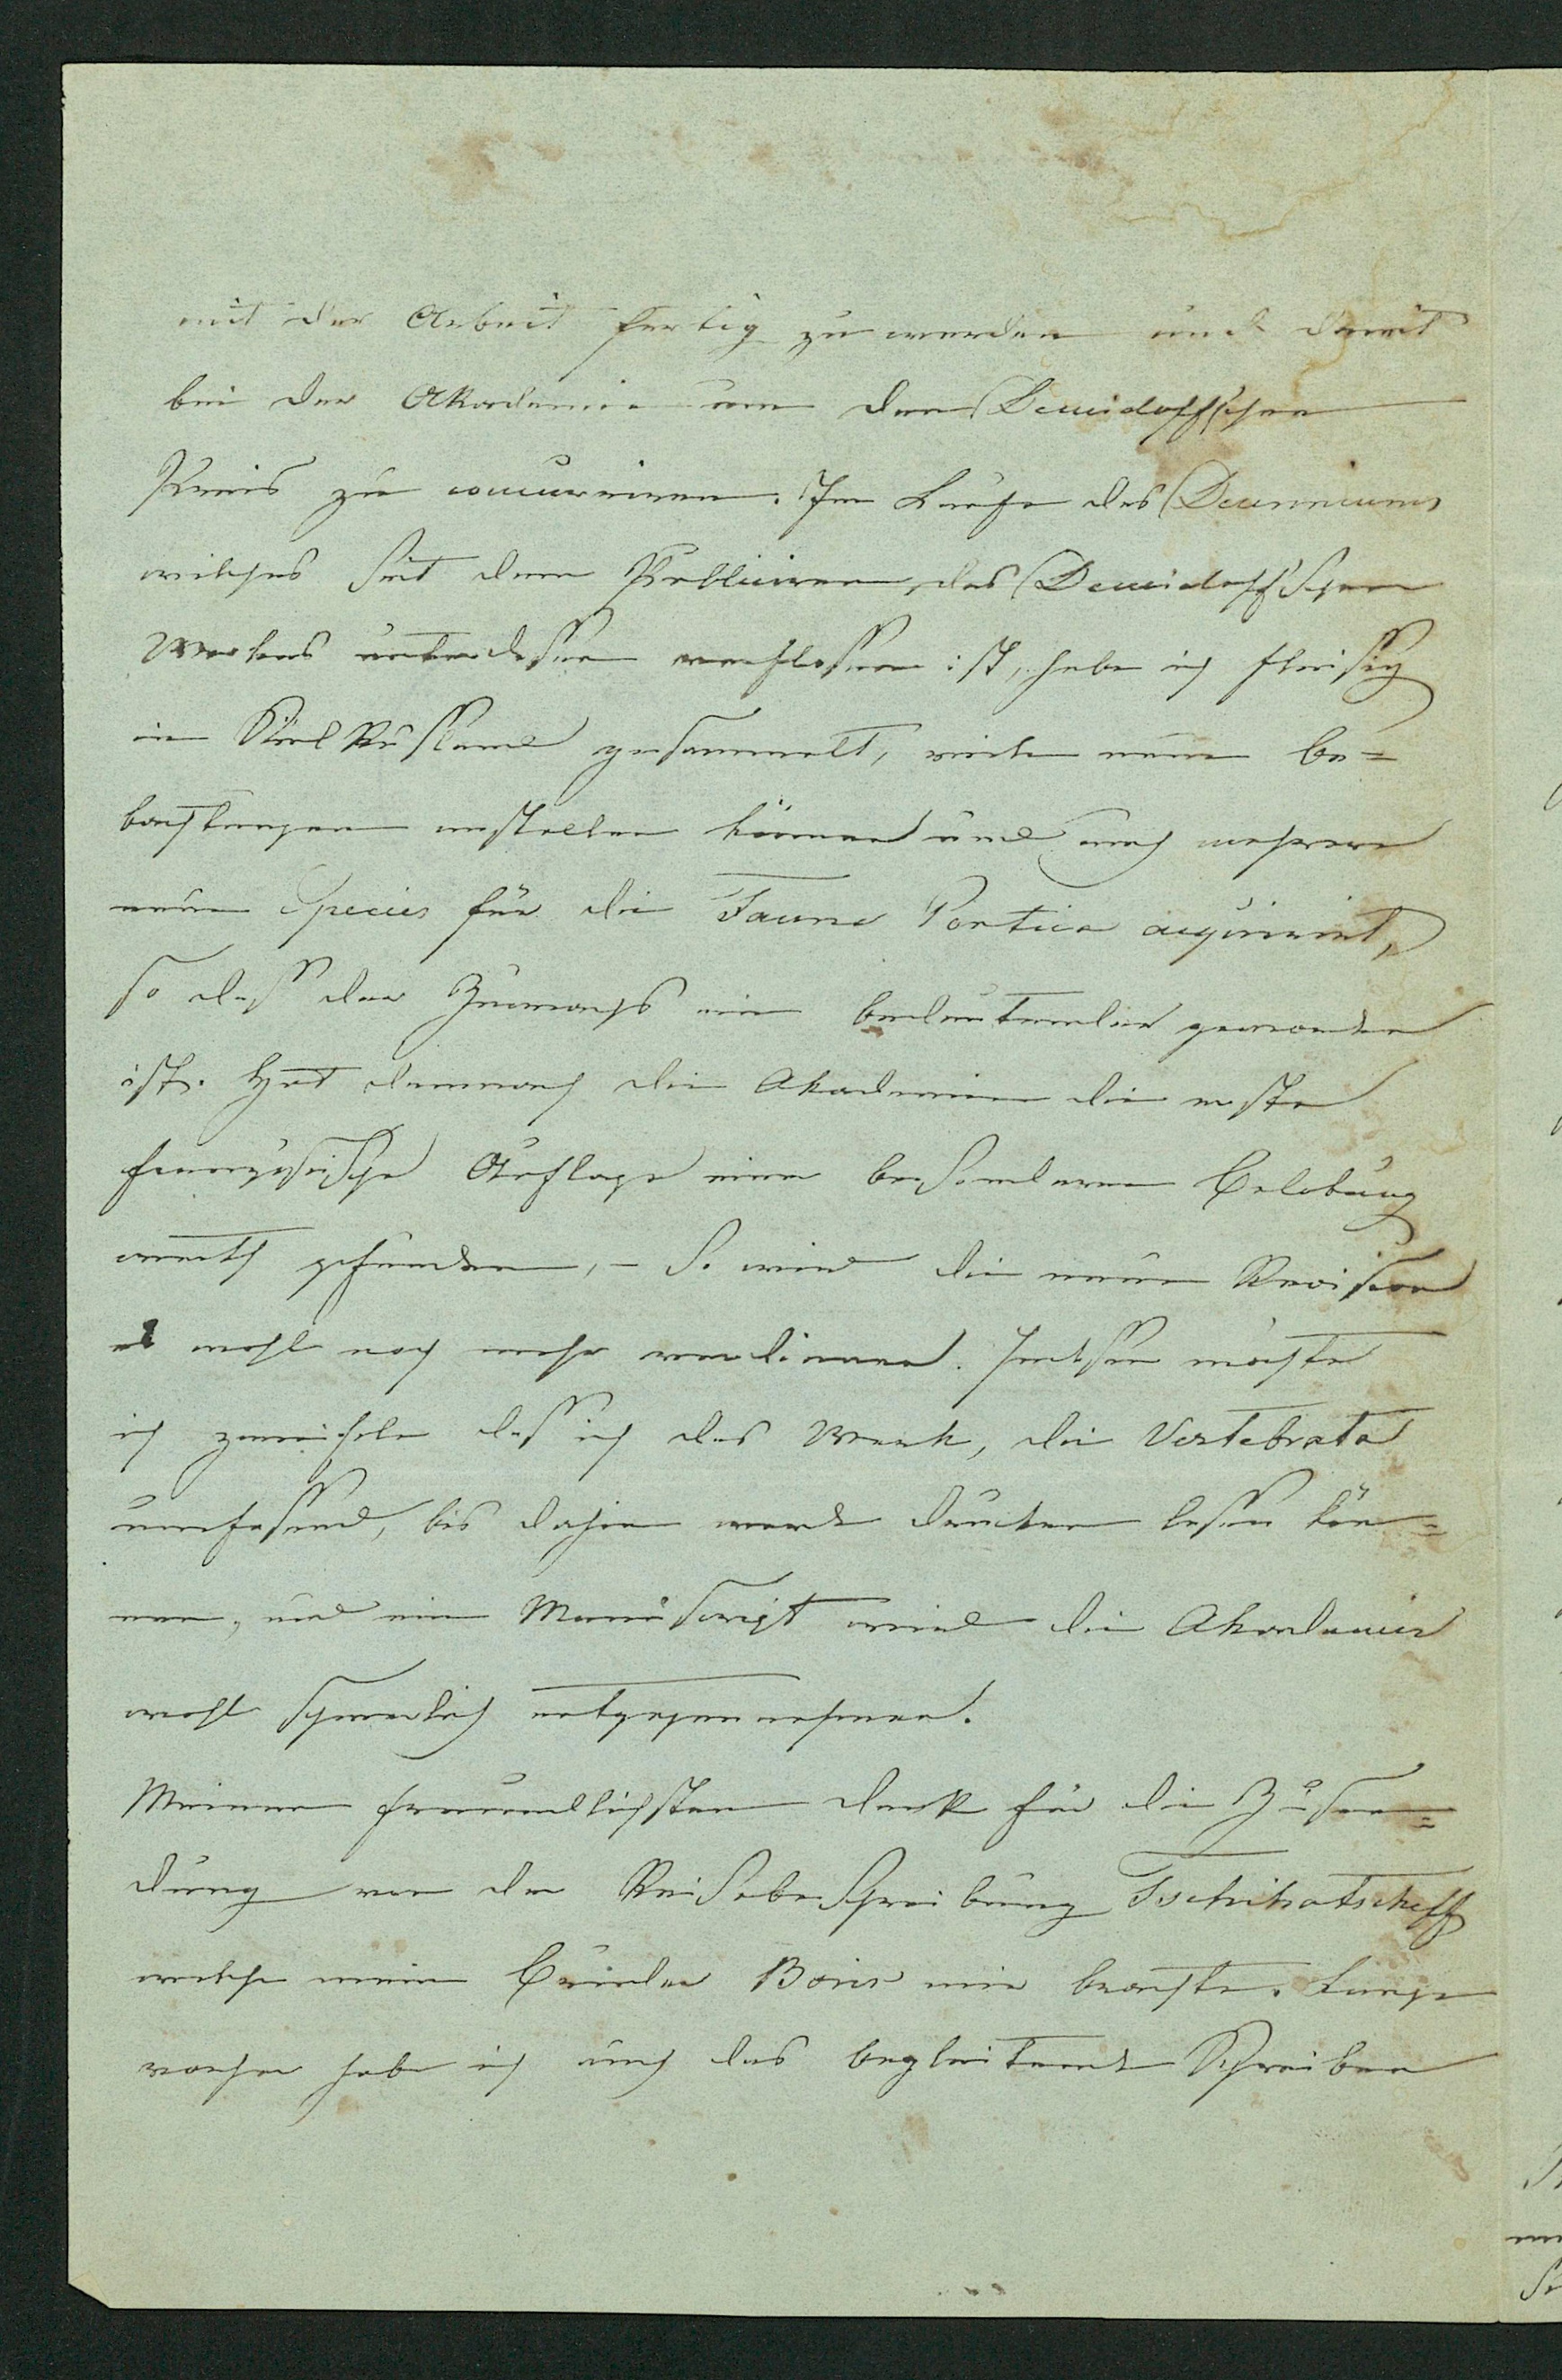 mit der Arbeit fertig zu werden und damit
bei der Akademie um den Demidoffschen
Preis zu concurriren. Im Laufe des Decenniums
welches seit dem Publiciren des Demidoffschen
Werkes unterdessen verflossen ist, habe ich fleissig
in Süd Russland gesammelt, viele neue Be=
bachtungen anstellen können und auch mehrere
neue Species für die Fauna Pontica acquirirt,
so daß der Zuwachs ein bedeutender geworden
ist. Hat demnach die Akademie die erste
französische Auflage einer besonderen Belobung
werth gefunden, – so wird die neue Revision
es wohl noch mehr verdienen. Indessen möchte
ich zweifeln daß ich das Werk, die Vertebrata
umfassend, bis dahin werde drucken lassen kön=
nen, und ein Manuscript wird die Akademie
wohl schwerlich entgegennehmen.
Meinen freundlichsten Dank für die Zusen=
dung von der Reisebeschreibung Tschihatscheff
welche mein Bruder Boris mir brachte. Lange
vorher habe ich auch das begleitende Schreiben